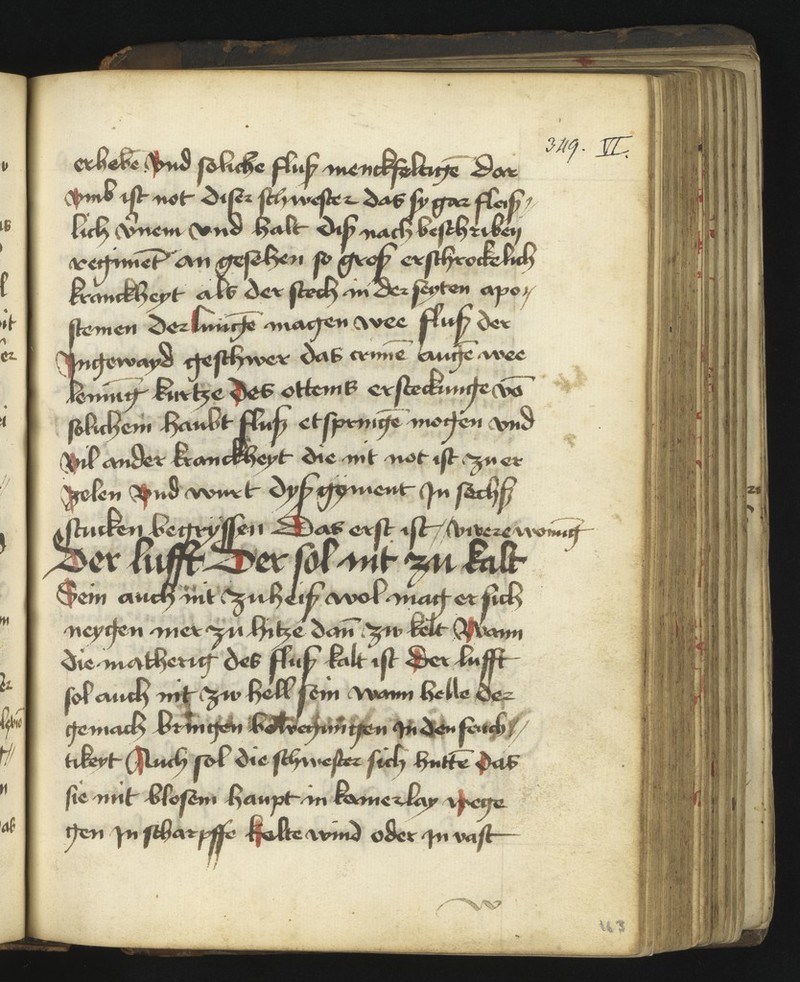 349. VI.
erhebē Vnd soliche fluß menckfeltigē Dar
vmb ist not diser schwester das sy gar fleiß〃
lich v̄nem vnd halt diß nach beschriben
regimēt an gesehen so groß erschrockelich
kranckheyt als der stech in der seyten apo〃
stemen der lungē magen wee fluß der
Ingewayd geschwer das crimē augē wee
lemūg kurtze des ottems ersteckunge vō
solichem haubt fluß etspringē mogen vnd
Vil ander kranckheyt die nit not ist zu er
zelen Vnd wurt dyß gyment In sechß
stucken begryffen Das erst ist
Der lufft Der sol nit zu kalt
Sein auch nit zu heiß wol mag er sich
neygen mer zu hitze dan̄ zw kelt Wann
die matherig des fluß kalt ist Der lufft
sol auch nit zw hell sein wann helle der
gemach bringen bewegungen In den feuch〃
tikeyt Auch sol die schwester sich huttē das
sie mit blosem haupt in keinerlay wege
gen In scharpffe kelte wind oder In vast
163